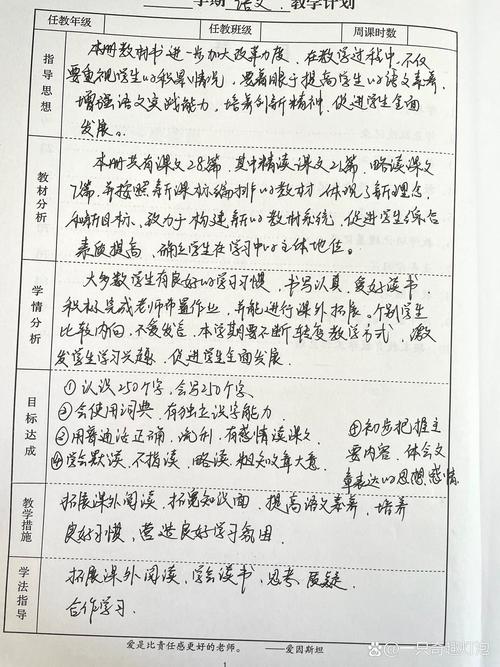 学期 语文 教学计划
任教年级 任教班级 周课时数
指导思想
本册教材书进一步加大改革力度，在教学过程中，不仅
要重视学生的积累情况，要着眼于提高学生的语文素养，
增强语文实践能力，培养创新精神，促进学生全面
发展。
教材分析
本册共有课文28篇，其中精读课文21篇，略读课文
7篇，并按照新课标编排的教材，体现了新理念，
和新目标、致力于构建新的教材系统，促进学生综合
素质提高，确立学生在学习中的主体地位。
学情分析
大多数学生有良好的学习习惯，书写认真，爱好读书，
积极完成老师布置作业，并能进行课外拓展。个别学生
比较内向，不爱发言，本学期要不断转变教学方式，激
发学生学习兴趣，促进学生全面发展。
目标达成
①认识250个字，会写250个字、
②会使用词典，有独立识字能力、
②用普通话正确、流利、有感情读课文、
④学会默读，不指读，略读，粗知文章大意、
④初步把握主
要内容，体会文
章表达的思想感情、
教学措施
拓展课外阅读，拓宽知识面，提高语文素养，培养
良好习惯，营造良好学习氛围、
学法指导
拓展课外阅读，学会读书，思考、质疑、
合作学习、
爱是比责任感更好的老师。 ——爱因斯坦
1
一只奇趣灯泡